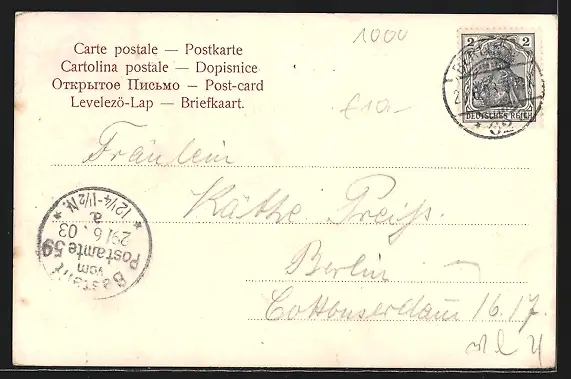 Carte postale — Postkarte
Cartolina postale — Dopisnice
Открытое Письмо — Post-card
Levelező-Lap — Briefkaart.
1000
€10-
2 2
DEUTSCHES REICH
BERLIN
62
Fräulein
Käthe Preiß.
Berlin
16.17.
Bestellt
vom
Postamte 59
29/6.03
12¼-1½N.